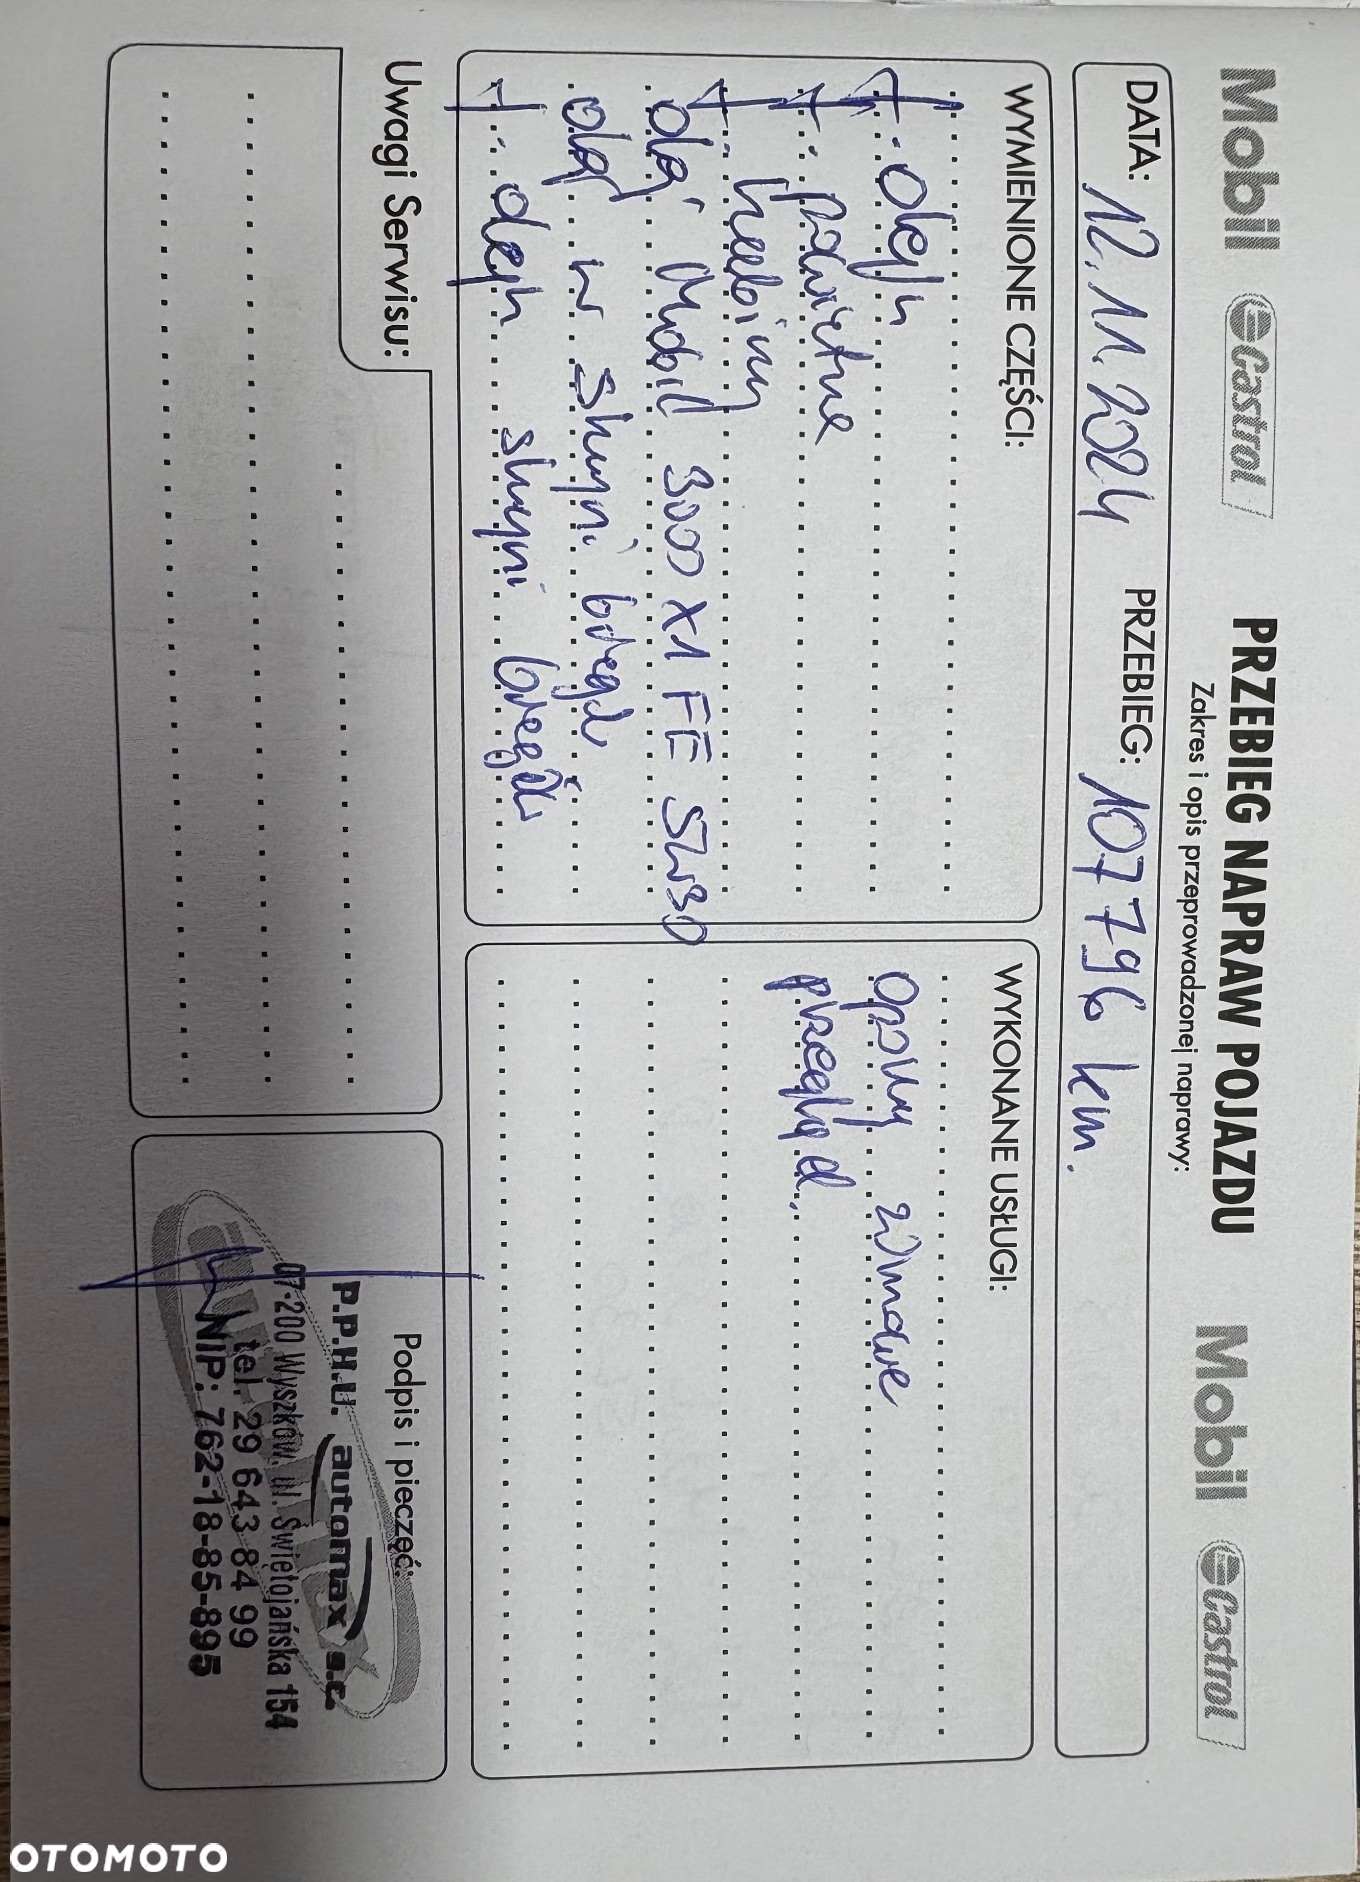 Mobil Castrol PRZEBIEG NAPRAW POJAZDU Mobil Castrol
Zakres i opis przeprowadzonej naprawy:
DATA: 12.11.2024 PRZEBIEG: 107796 km.
WYMIENIONE CZĘŚCI:
f. oleju
f. powietrza
f. kabiny
olej Mobil 3000 X1 FE 5W30
olej w skrzyni biegów
f. oleju skrzyni biegów
WYKONANE USŁUGI:
opony zimowe
przegląd.
Uwagi Serwisu:
Podpis i pieczęć:
P.P.H.U. automax s.c.
07-200 Wyszków, ul. Świętojańska 154
tel. 29 643 84 99
NIP: 762-18-85-895
OTOMOTO